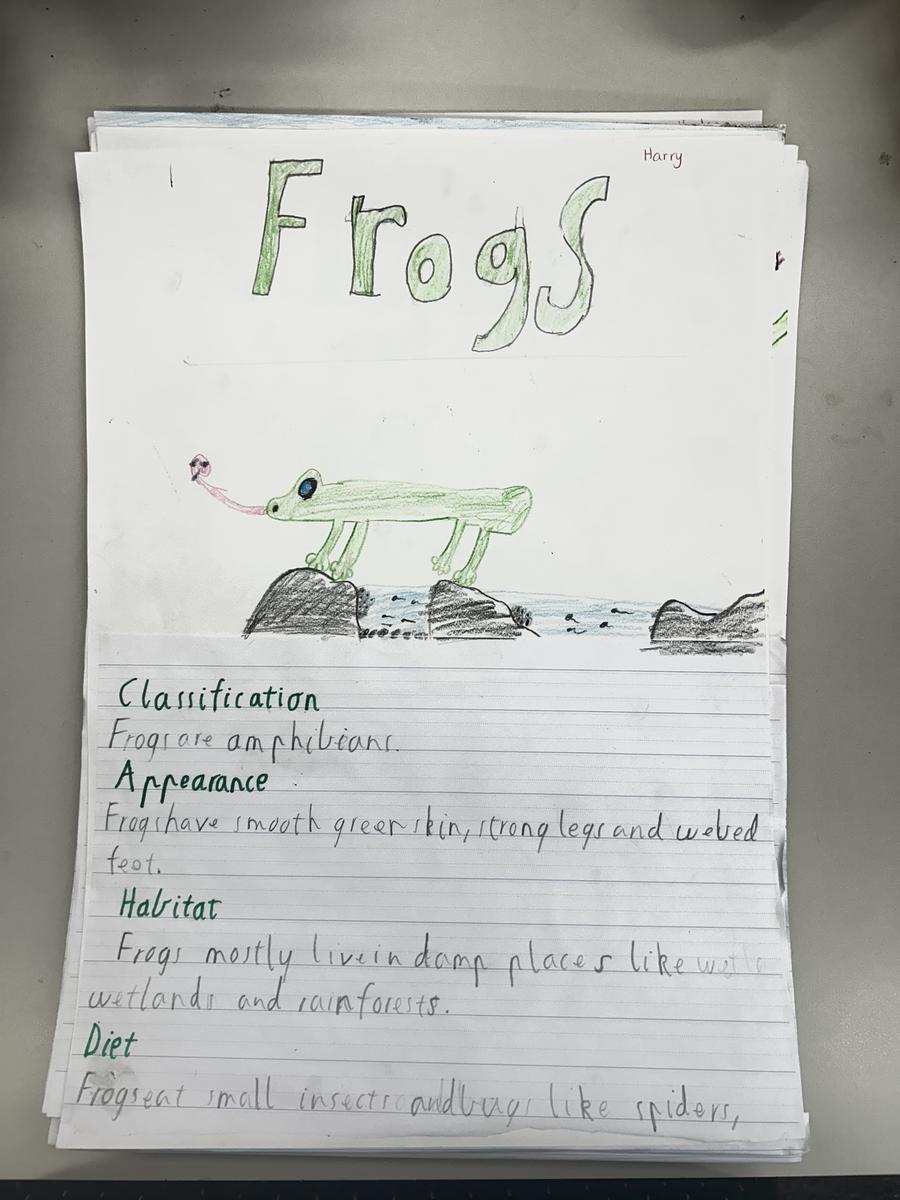 Harry
Frogs
Classification
Frogs are amphibians.
Appearance
Frogs have smooth green skin, strong legs and webed
feet.
Habitat
Frogs mostly live in damp places like
wetlands and rainforests.
Diet
Frogs eat small insects and bugs like spiders,